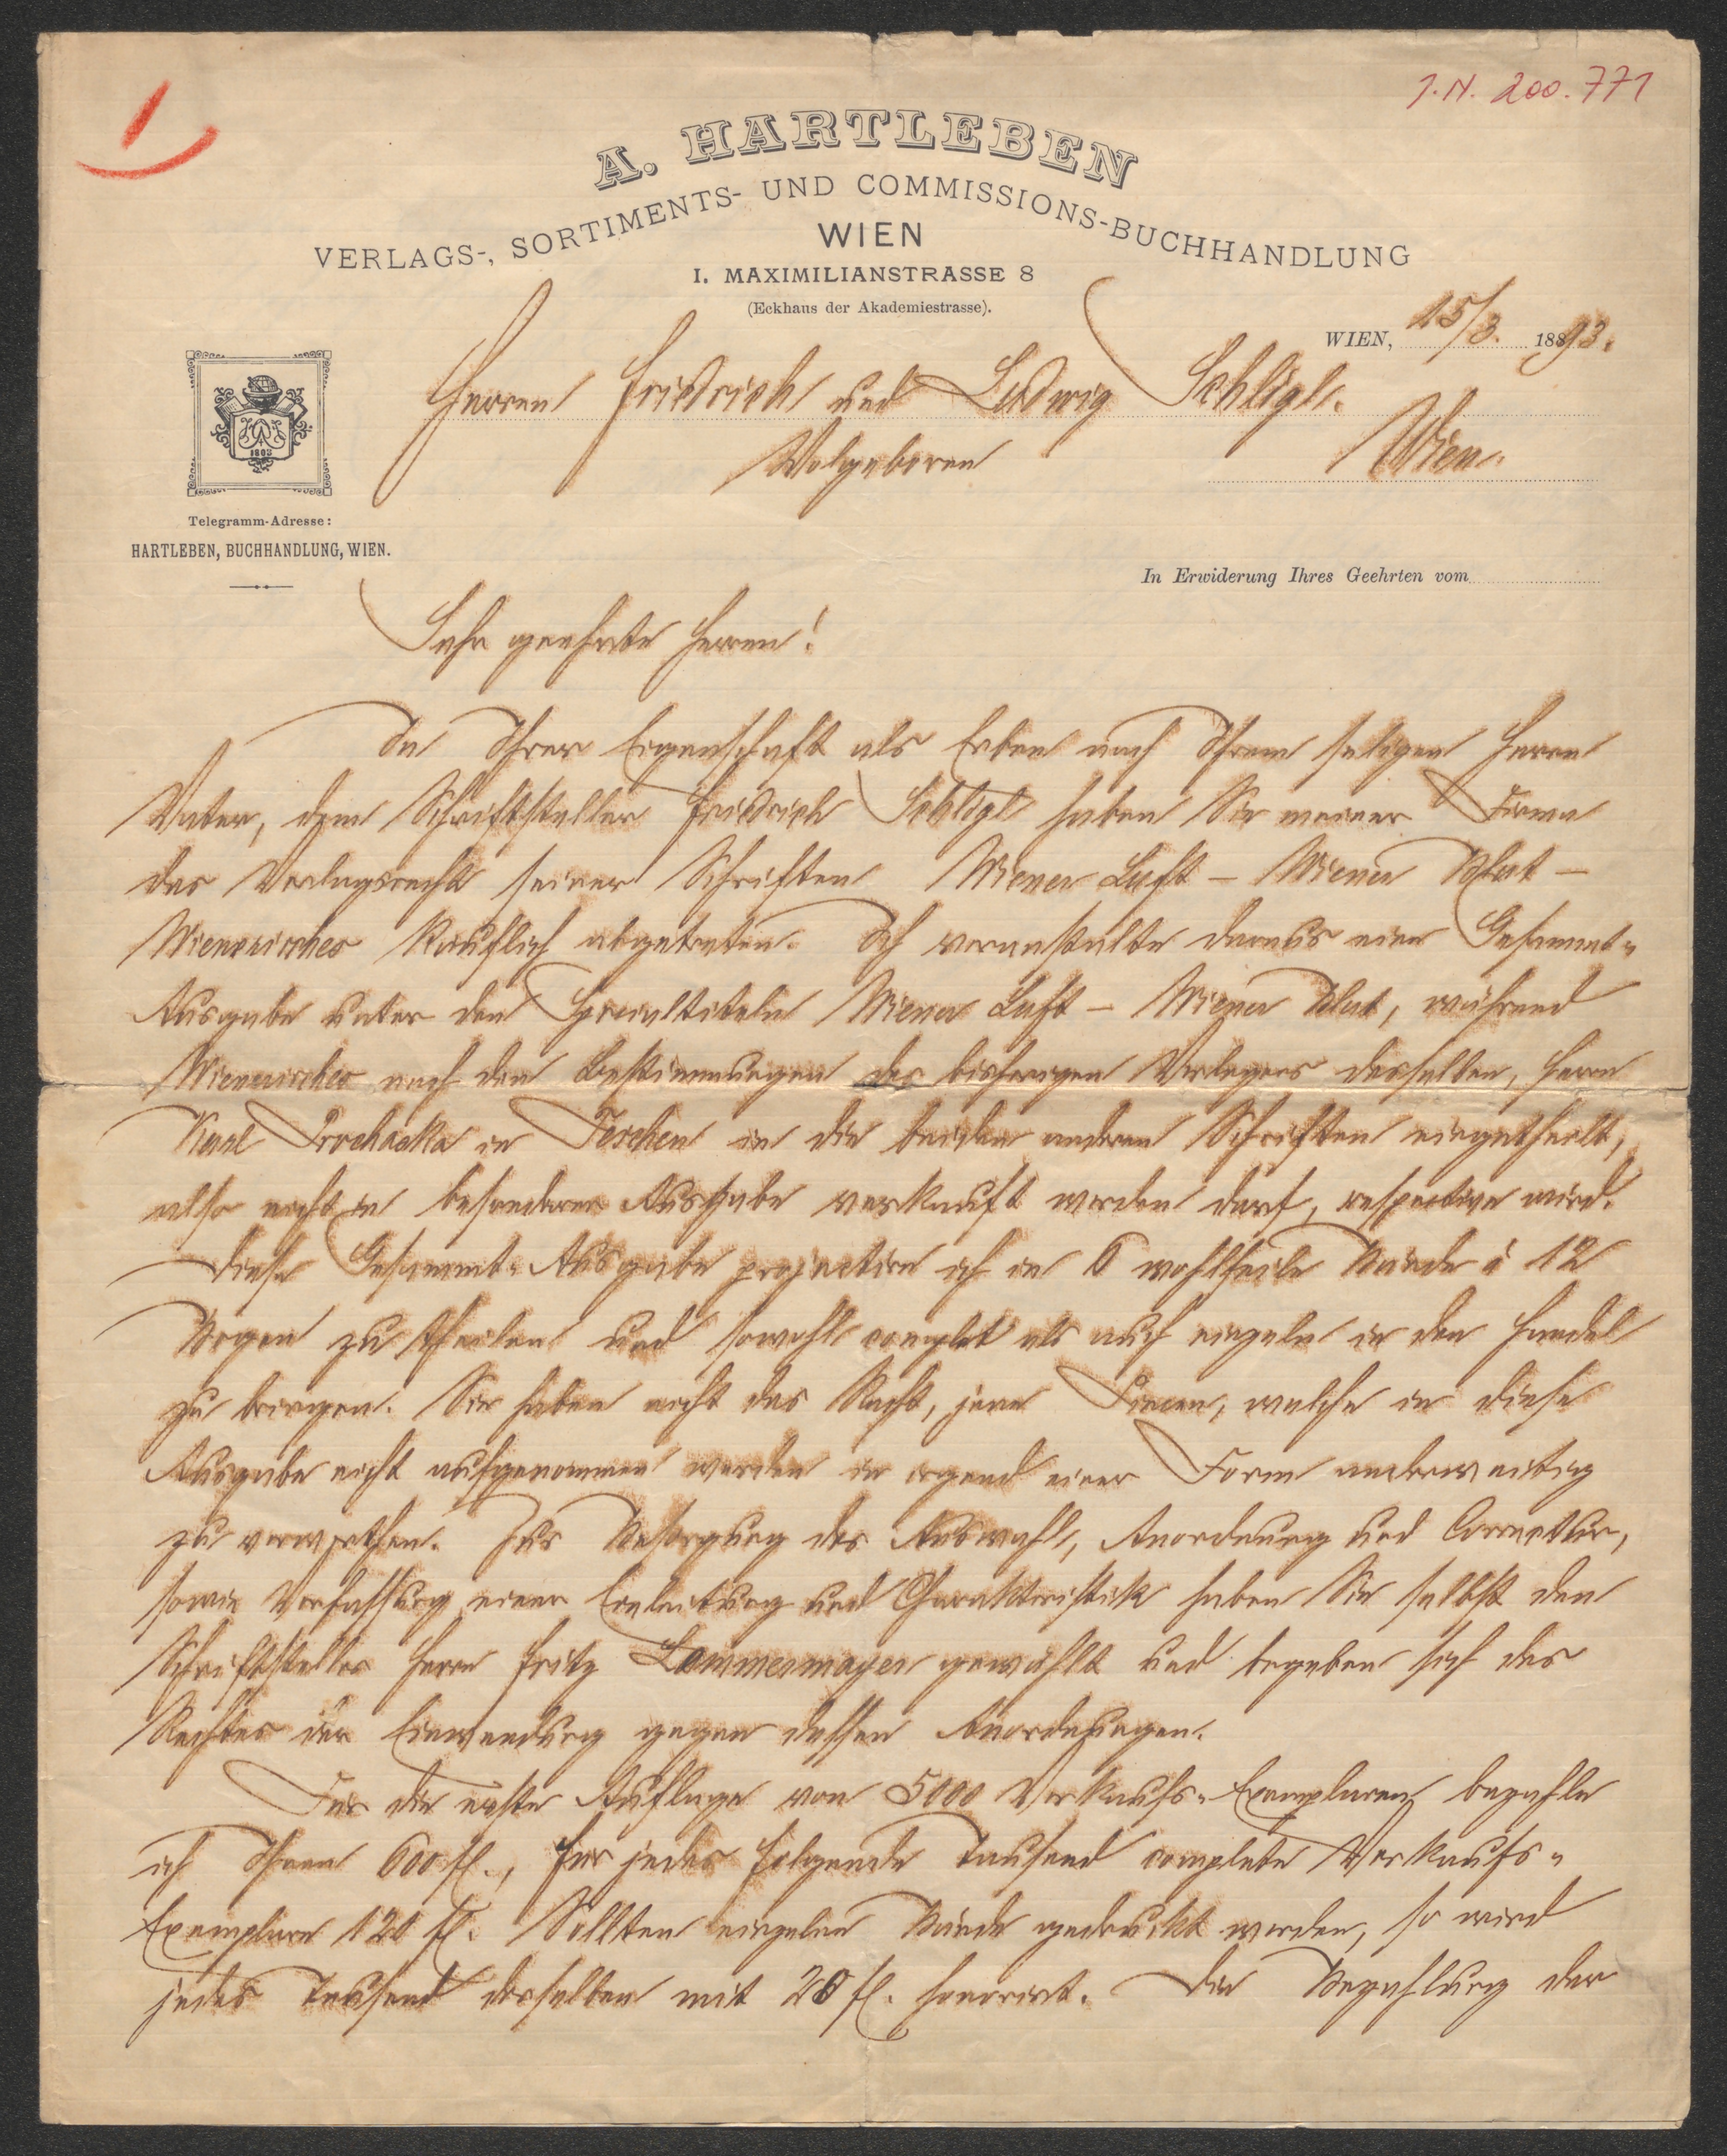 1
J. N. 200.771
A. HARTLEBEN
VERLAGS-, SORTIMENTS- UND COMMISSIONS-BUCHHANDLUNG
WIEN
I. MAXIMILIANSTRASSE 8
(Eckhaus der Akademiestrasse).
WIEN, 15/3. 1893.
Herren Friedrich und Ludwig Schlögl.
Wolgeboren Wien.
1803
Telegramm-Adresse:
HARTLEBEN, BUCHHANDLUNG, WIEN.
In Erwiderung Ihres Geehrten vom
Sehr geehrte Herren!
In Ihrer Eigenschaft als Erben nach Ihrem seligen Herrn
Vater, dem Schriftsteller Friedrich Schlögl haben Sie meiner Firma
das Verlagsrecht seiner Schriften Wiener Luft – Wiener Blut –
Wienerisches käuflich abgetreten. Ich veranstalte daraus eine Gesammt-
Ausgabe unter den Specialtiteln Wiener Luft – Wiener Blut, während
Wienerisches nach den Bestimmungen des bisherigen Verlegers desselben, Herrn
Karl Prochaska in Teschen in die beiden anderen Schriften eingetheilt,
also nicht in besonderer Ausgabe verkauft werden darf, respective wird.
Diese Gesammt-Ausgabe projectire ich in 6 wohlfeile Bände à 12
Bogen zu theilen und sowohl complet als auch einzeln in den Handel
zu bringen. Sie haben nicht das Recht, jene welche in diese
Ausgabe nicht aufgenommen werden in irgend einer Form anderweitig
zu verwerthen. Zur Besorgung der Auswahl, Anordnung und Correctur,
sowie Verfassung einer Einleitung und Charakteristik haben Sie selbst den
Schriftsteller Herrn Fritz Lemmermayer gewählt und begeben sich des
Rechtes der Einwendung gegen dessen Anordnungen.
Für die erste Auflage von 5000 Verkaufs-Exemplaren bezahle
ich Ihnen 600 fl., für jedes folgende Tausend complete Verkaufs-
Exemplare 120 fl. Sollten einzelne Bände gedruckt werden, so wird
jedes Tausend derselben mit 20 fl. honorirt. Die Bezahlung der